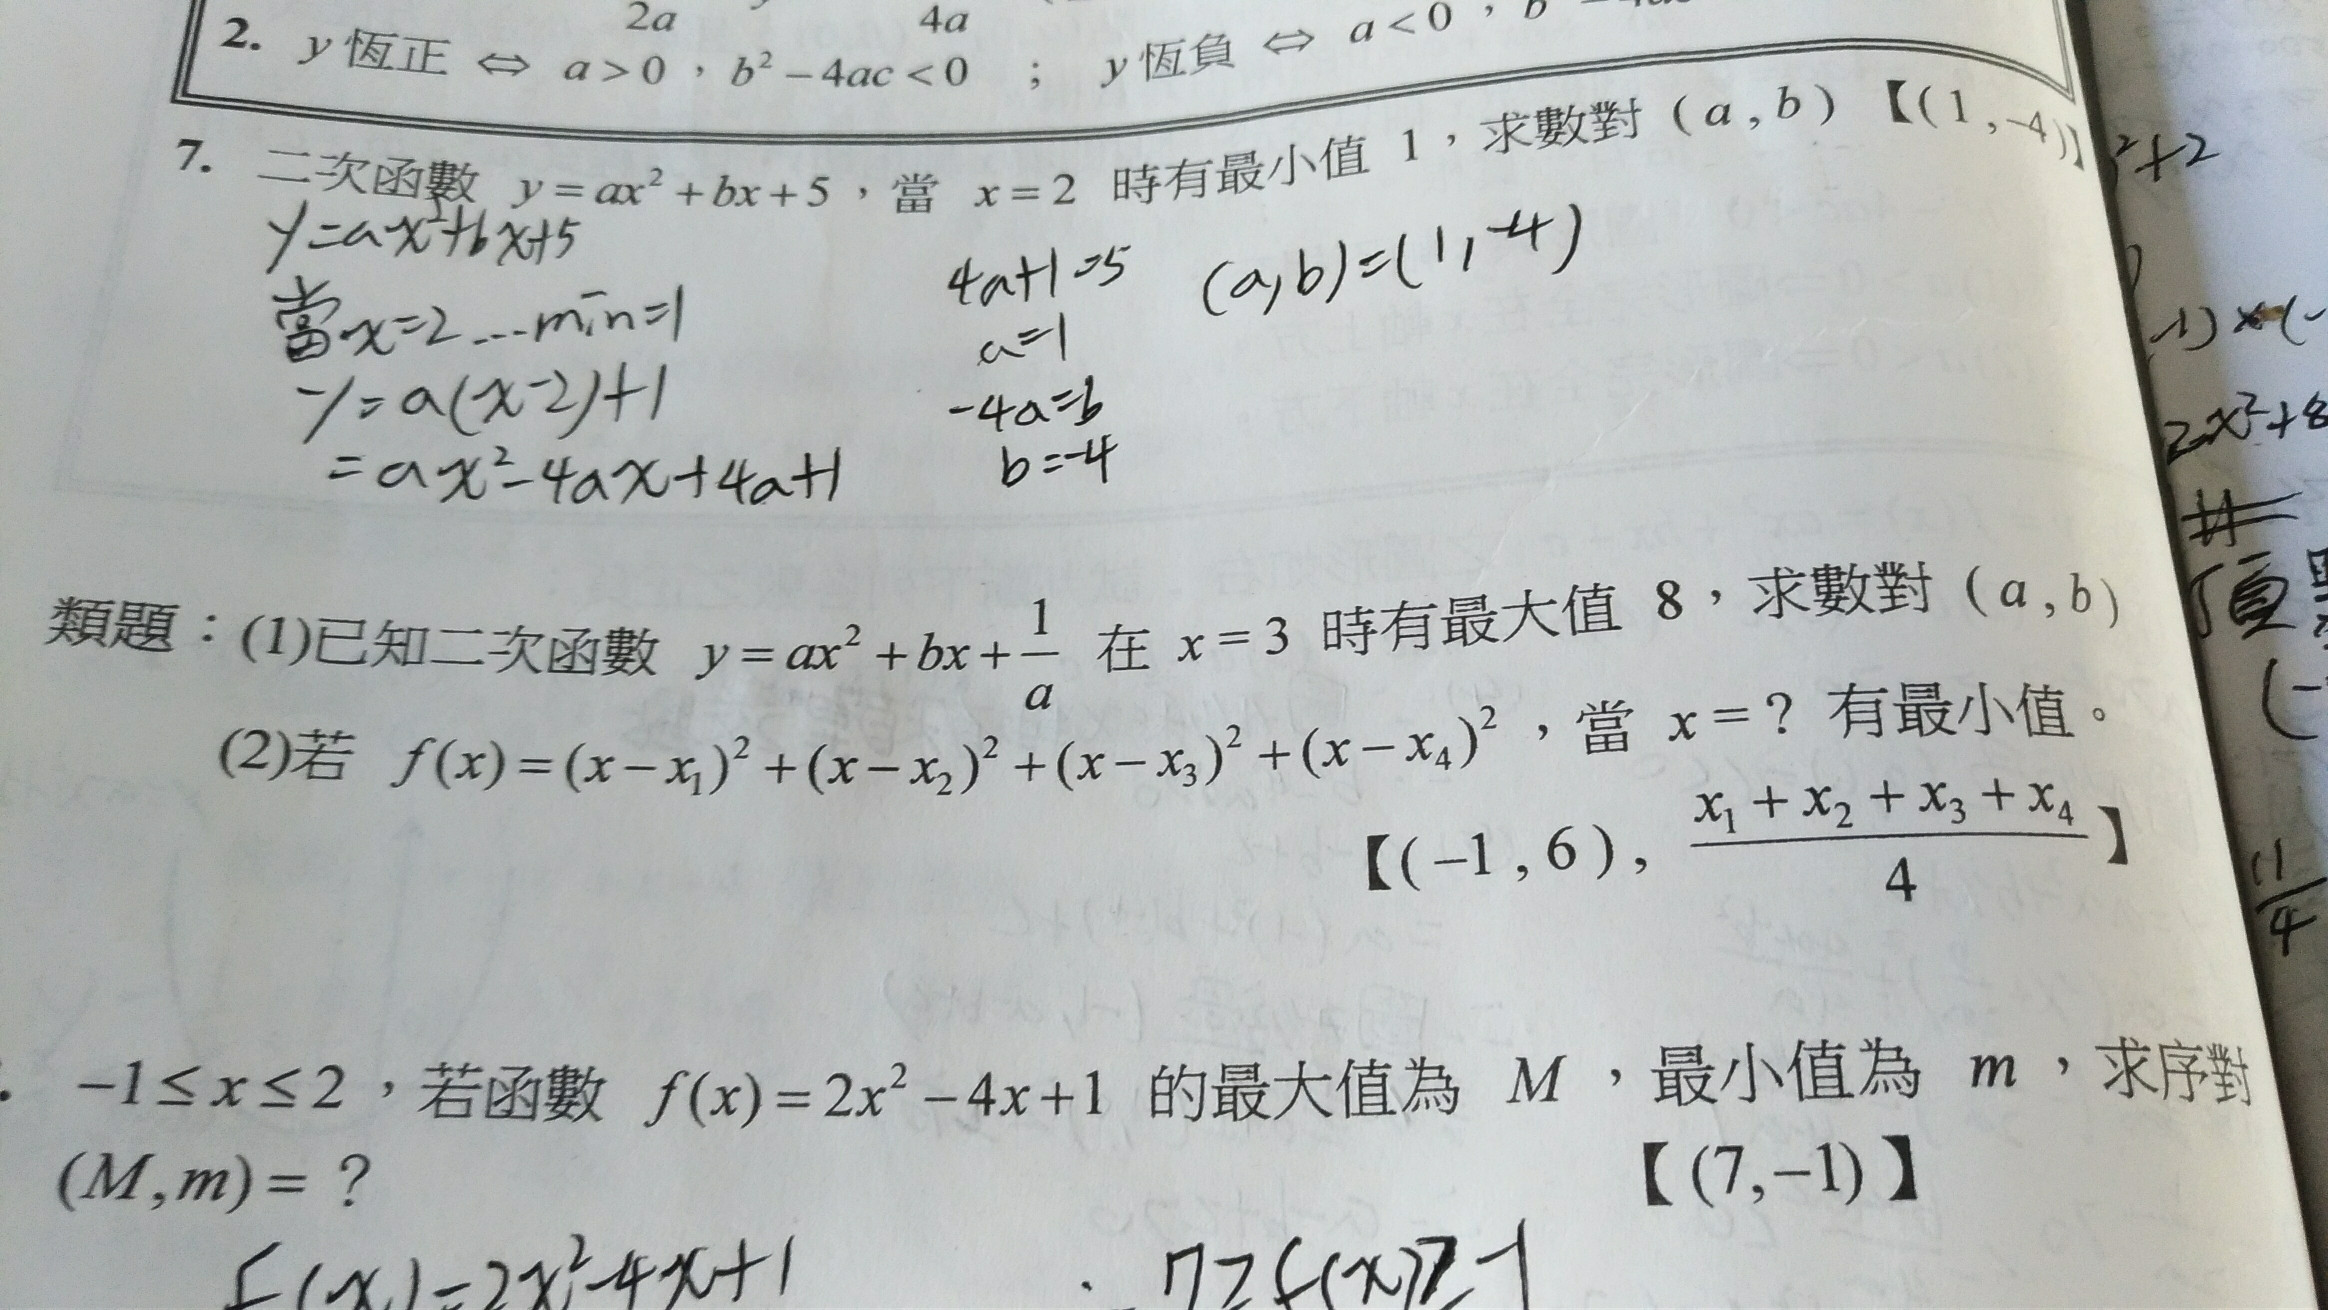 2a 4a
2. y 恆正 ⇔ a > 0 , b² − 4ac < 0 ; y 恆負 ⇔ a < 0 , b² − 4ac
7. 二次函數 y = ax² + bx + 5,當 x = 2 時有最小值 1,求數對 (a , b) 【(1 , −4)】
y=ax²+bx+5
當x=2...min=1
y=a(x-2)+1
=ax²-4ax+4a+1
4a+1=5
a=1
-4a=b
b=-4
(a,b)=(1,-4)
類題:(1)已知二次函數 y = ax² + bx + 1/a 在 x = 3 時有最大值 8,求數對 (a , b)
(2)若 f(x) = (x − x₁)² + (x − x₂)² + (x − x₃)² + (x − x₄)²,當 x = ? 有最小值。
【(−1 , 6) , (x₁ + x₂ + x₃ + x₄)/4】
−1 ≤ x ≤ 2,若函數 f(x) = 2x² − 4x + 1 的最大值為 M,最小值為 m,求序對
(M , m) = ? 【(7,−1)】
f(x)=2x²-4x+1
7≥f(x)≥-1
²+2
2x²+8
頂
11/4